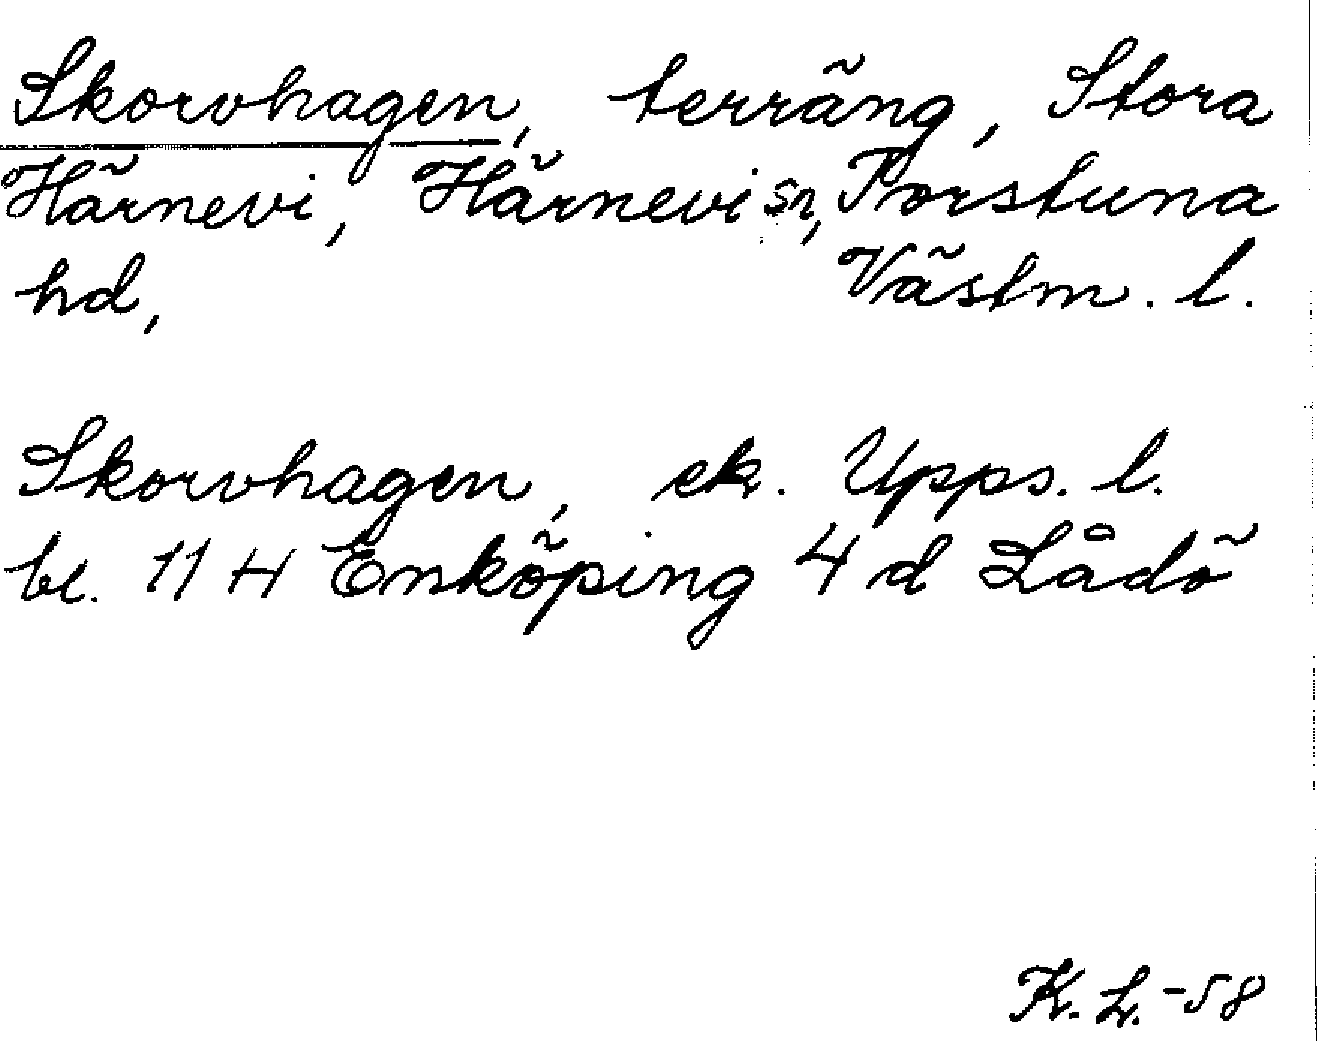 Skorvhagen, terräng, Stora
Härnevi, Härnevi sn, Torstuna
hd, Västm. l.
Skorvhagen, ek. Upps. l.
bl. 11 H Enköping 4 d Lådö
K. L. -58